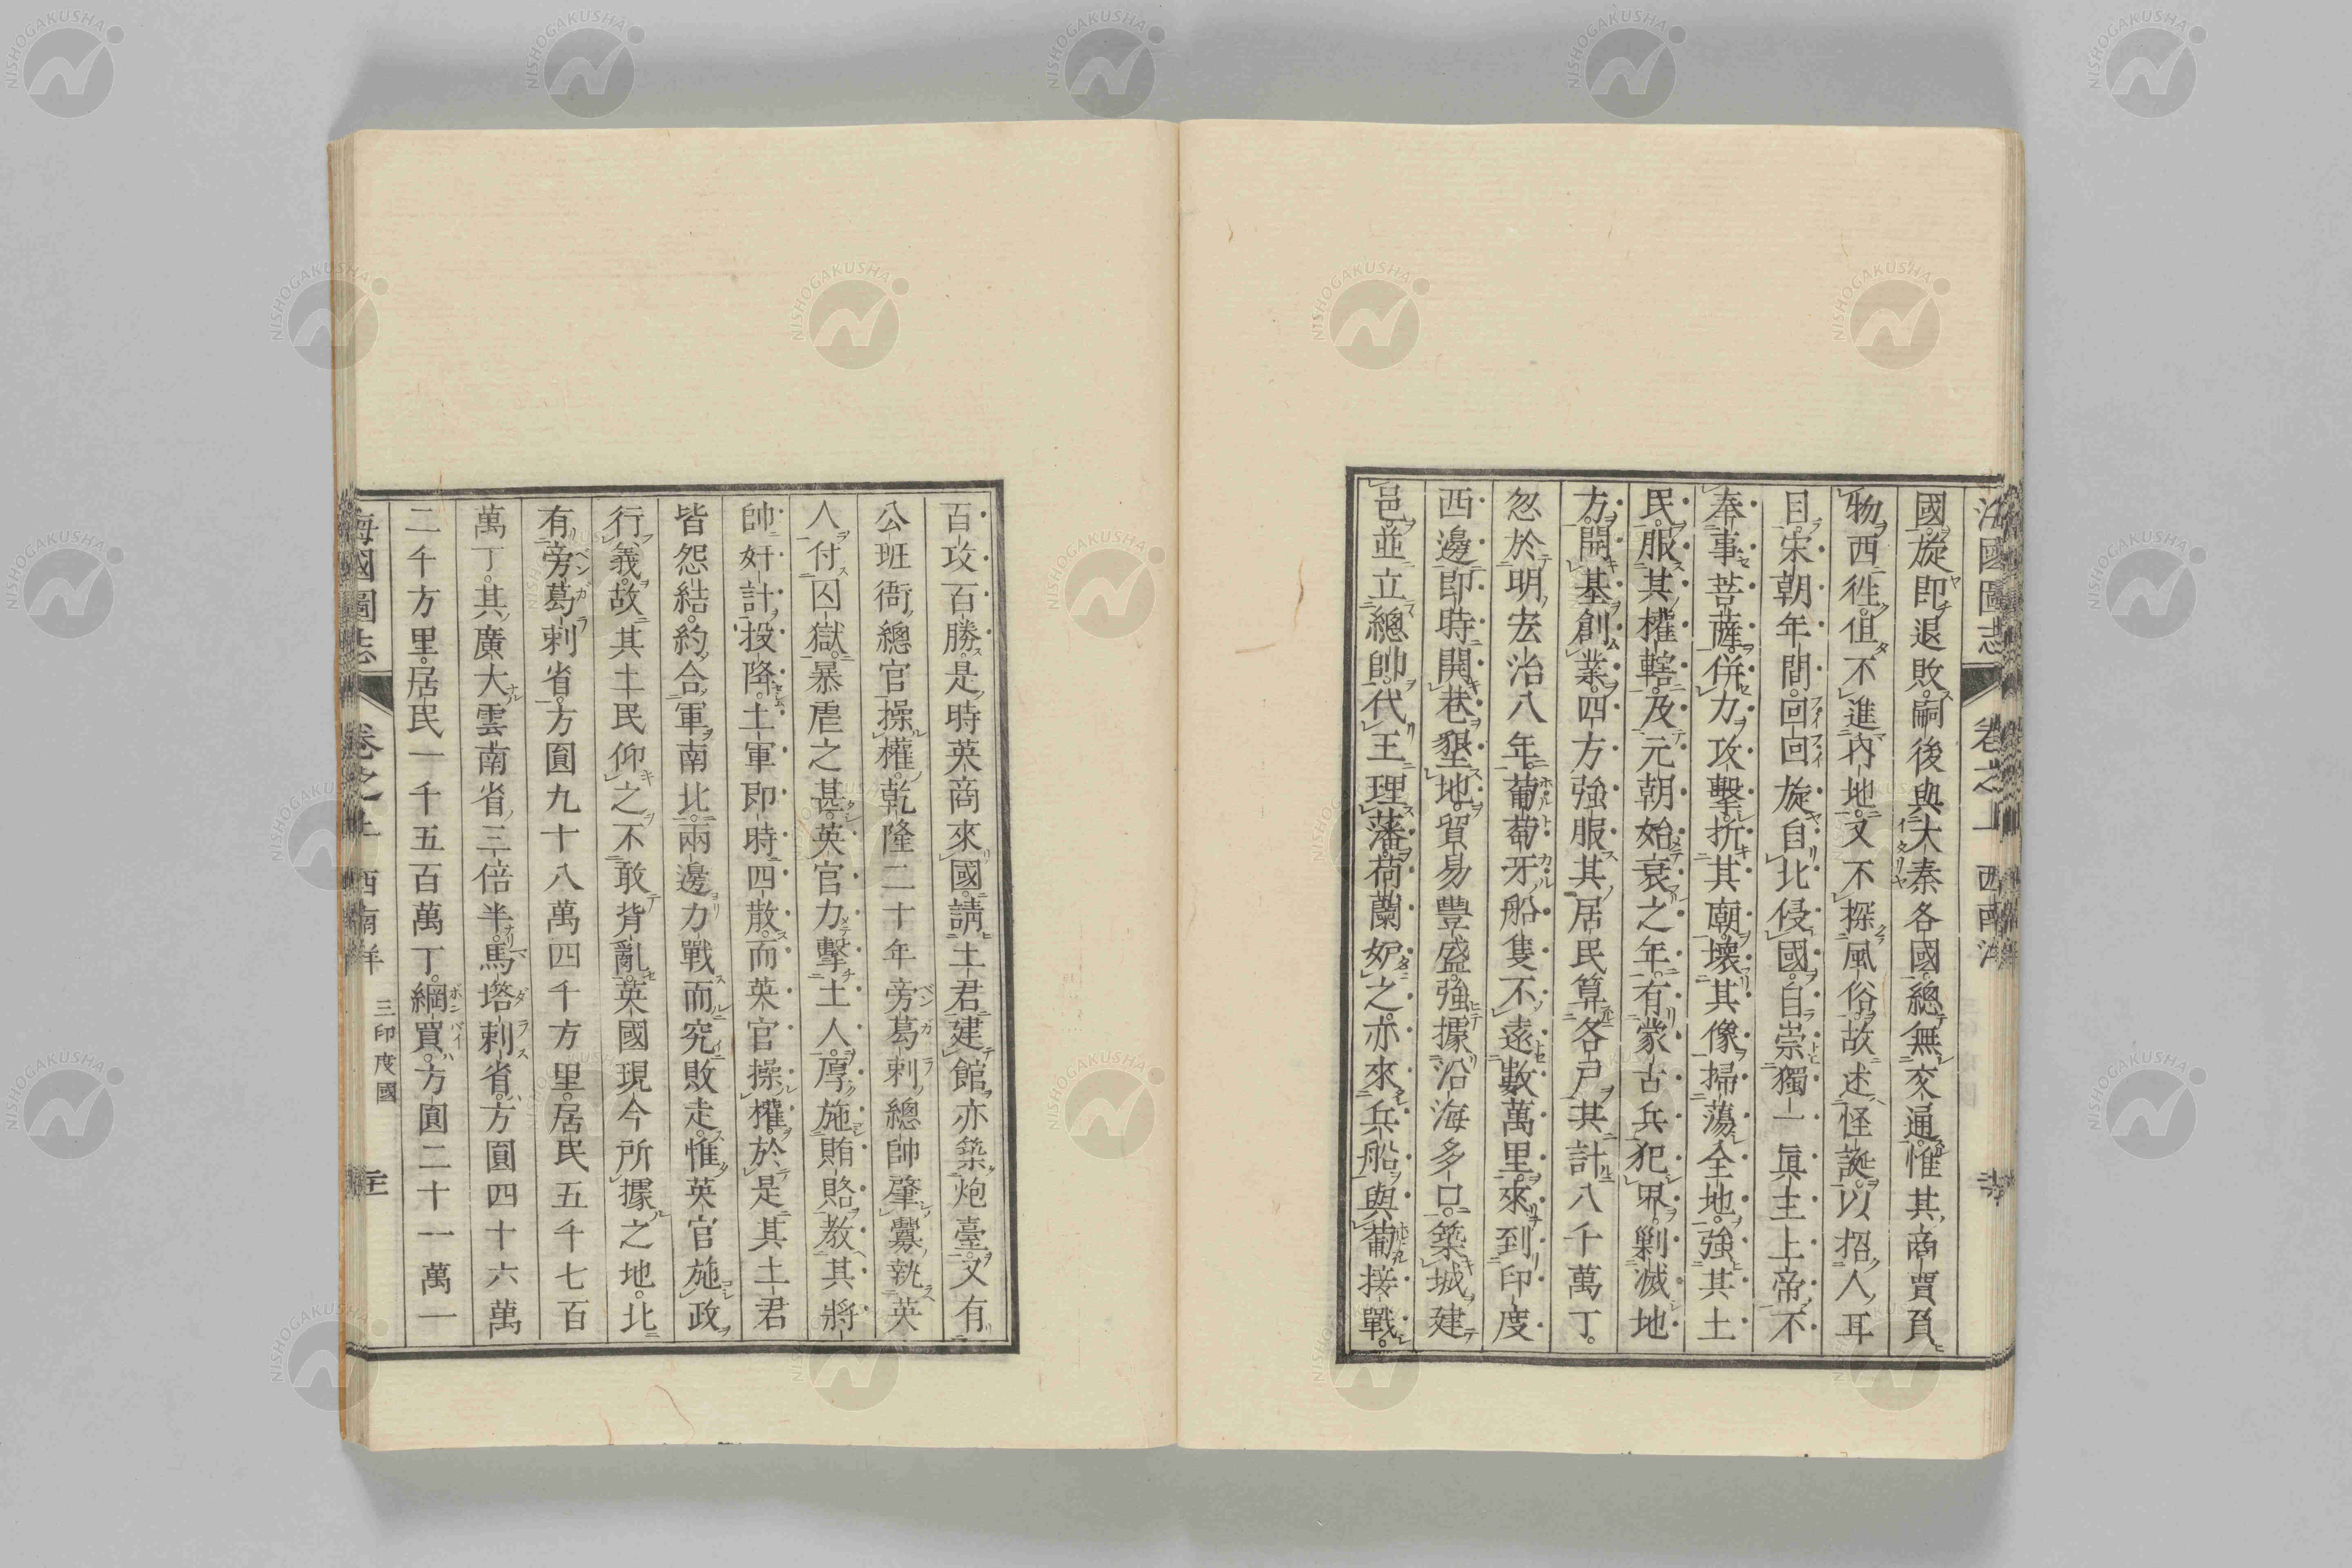 國旋即退敗。嗣後與大秦各國。總無交通。惟其商賈負
物西徃。但不進內地。又不探風俗。故述怪誕。以招人耳
目。宋朝年間。回回旋自北侵國。自崇獨一眞主上帝。不
奉事菩薩。併力攻擊。折其廟。壞其像。掃蕩全地。強其土
民。服其權轄。及元朝始衰之年。有蒙古兵犯界。剿滅地
方。開基創業。四方強服其居民。算各戶其計八千萬丁。
忽於明宏治八年。葡萄牙船隻不遠數萬里。來到印度
西邊。即時開巷墾地。貿易豐盛。強據沿海多口。築城建
邑。並立總帥。代王理藩。荷蘭妒之。亦來兵船。與葡接戰。
百攻百勝。是時英商來國。請土君建館。亦築炮臺。又有
公班衙總官操權。乾隆二十年。旁葛剌總帥肇釁。執英
人付囚獄。暴虐之甚。英官力擊土人。厚施賄賂。教其將
帥奸計投降。土軍即時四散。而英官操權。於是其土君
皆怨結約。合軍南北。兩邊力戰。而究敗走。惟英官施政
行義。故其土民仰之。不敢背亂。英國現今所據之地。北
有旁葛剌省。方圓九十八萬四千方里。居民五千七百
萬丁。其廣大雲南省三倍半。馬塔剌省。方圓四十六萬
二千方里。居民一千五百萬丁。網買。方圓二十一萬一
海國圖志 卷之上 西南洋 三印度國
NISHOGAKUSHA